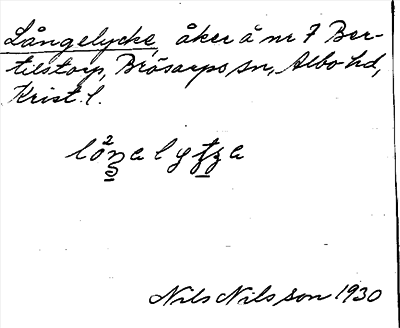 Långelycke, åker å nr 7 Ber-
tilstorp, Brösarps sn, Albo hd,
Krist. l.
Nils Nilsson 1930